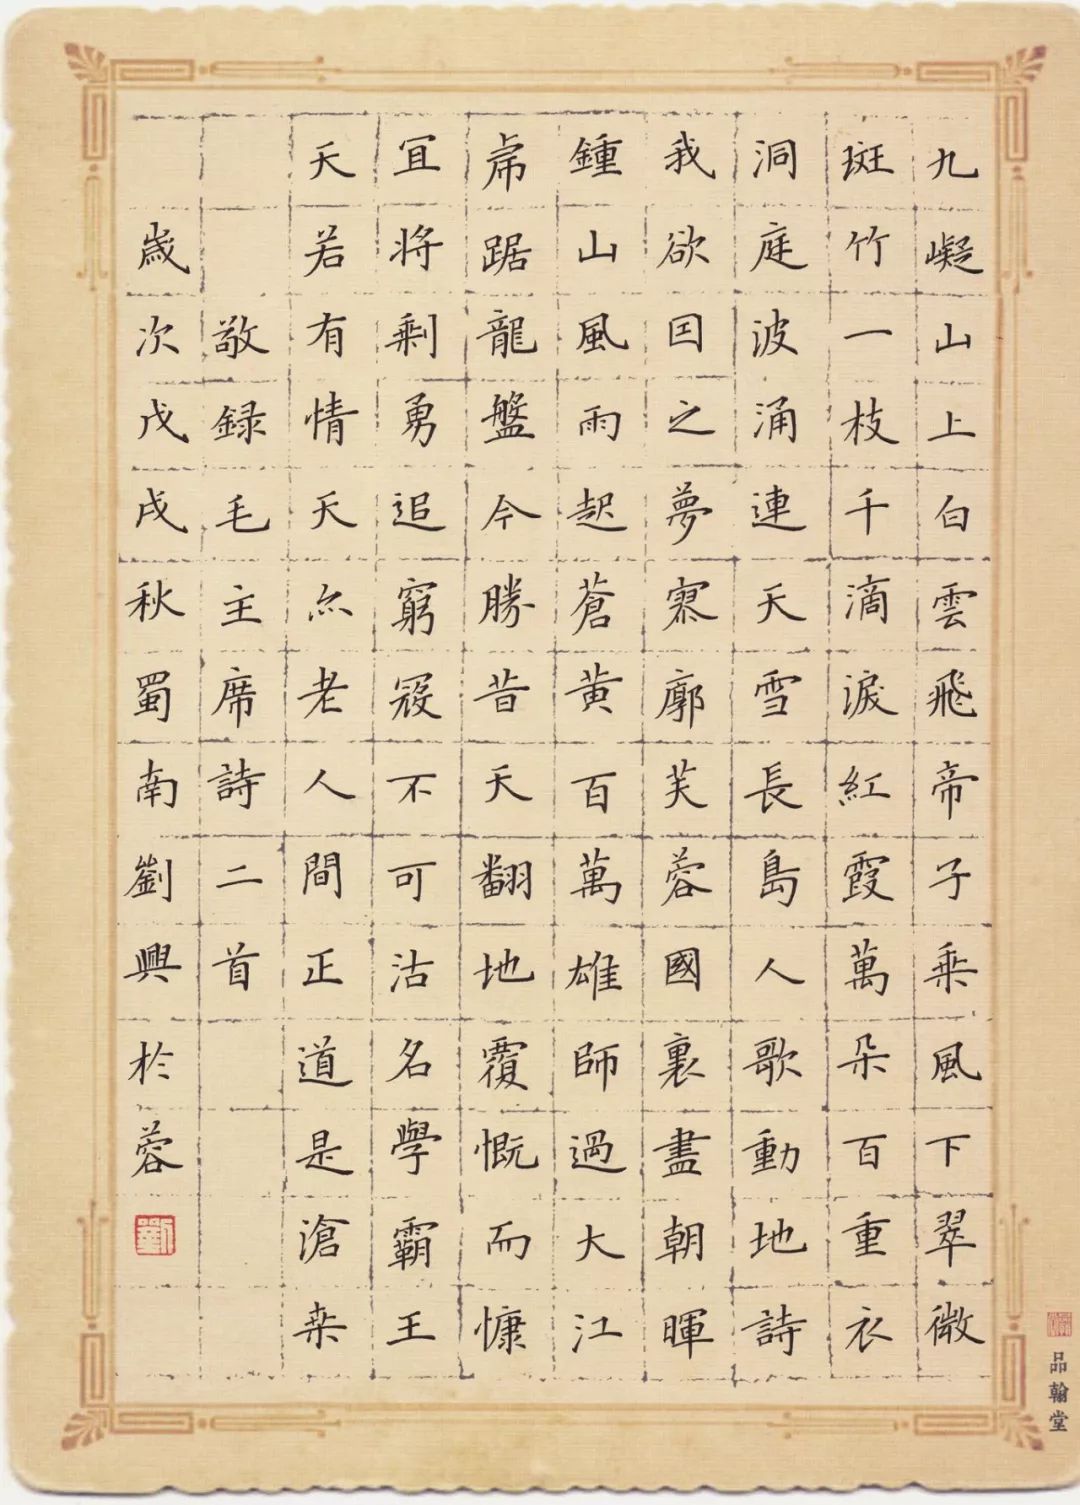 九嶷山上白雲飛帝子乘風下翠微
斑竹一枝千滴淚紅霞萬朵百重衣
洞庭波涌連天雪長島人歌動地詩
我欲因之夢寥廓芙蓉國裏盡朝暉
鍾山風雨起蒼黄百萬雄師過大江
虎踞龍盤今勝昔天翻地覆慨而慷
宜將剩勇追窮寇不可沽名學霸王
天若有情天亦老人間正道是滄桑
敬録毛主席詩二首
歲次戊戌秋蜀南劉興於蓉
劉
品翰堂